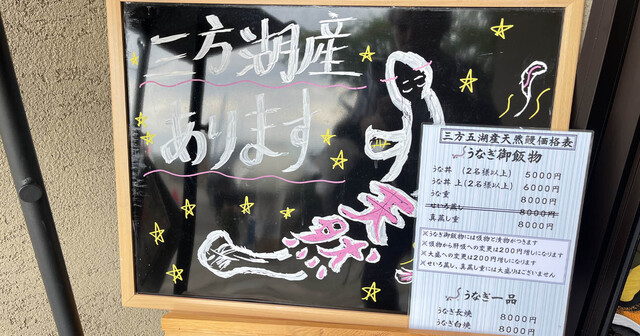 三方湖産
あります
天然
三方五湖産天然鰻価格表
うなぎ御飯物
うな丼 (2名様以上) 5000円
うな丼 上(2名様以上) 6000円
うな重 8000円
せいろ蒸し 8000円
真蒸し重 8000円
※うなぎ御飯物には吸物と漬物がつきます
※吸物から肝吸への変更は200円増しになります
※大盛への変更は200円増しになります
※せいろ蒸し、真蒸し重には大盛りはございません
うなぎ一品
うなぎ長焼 8000円
うなぎ白焼 8000円